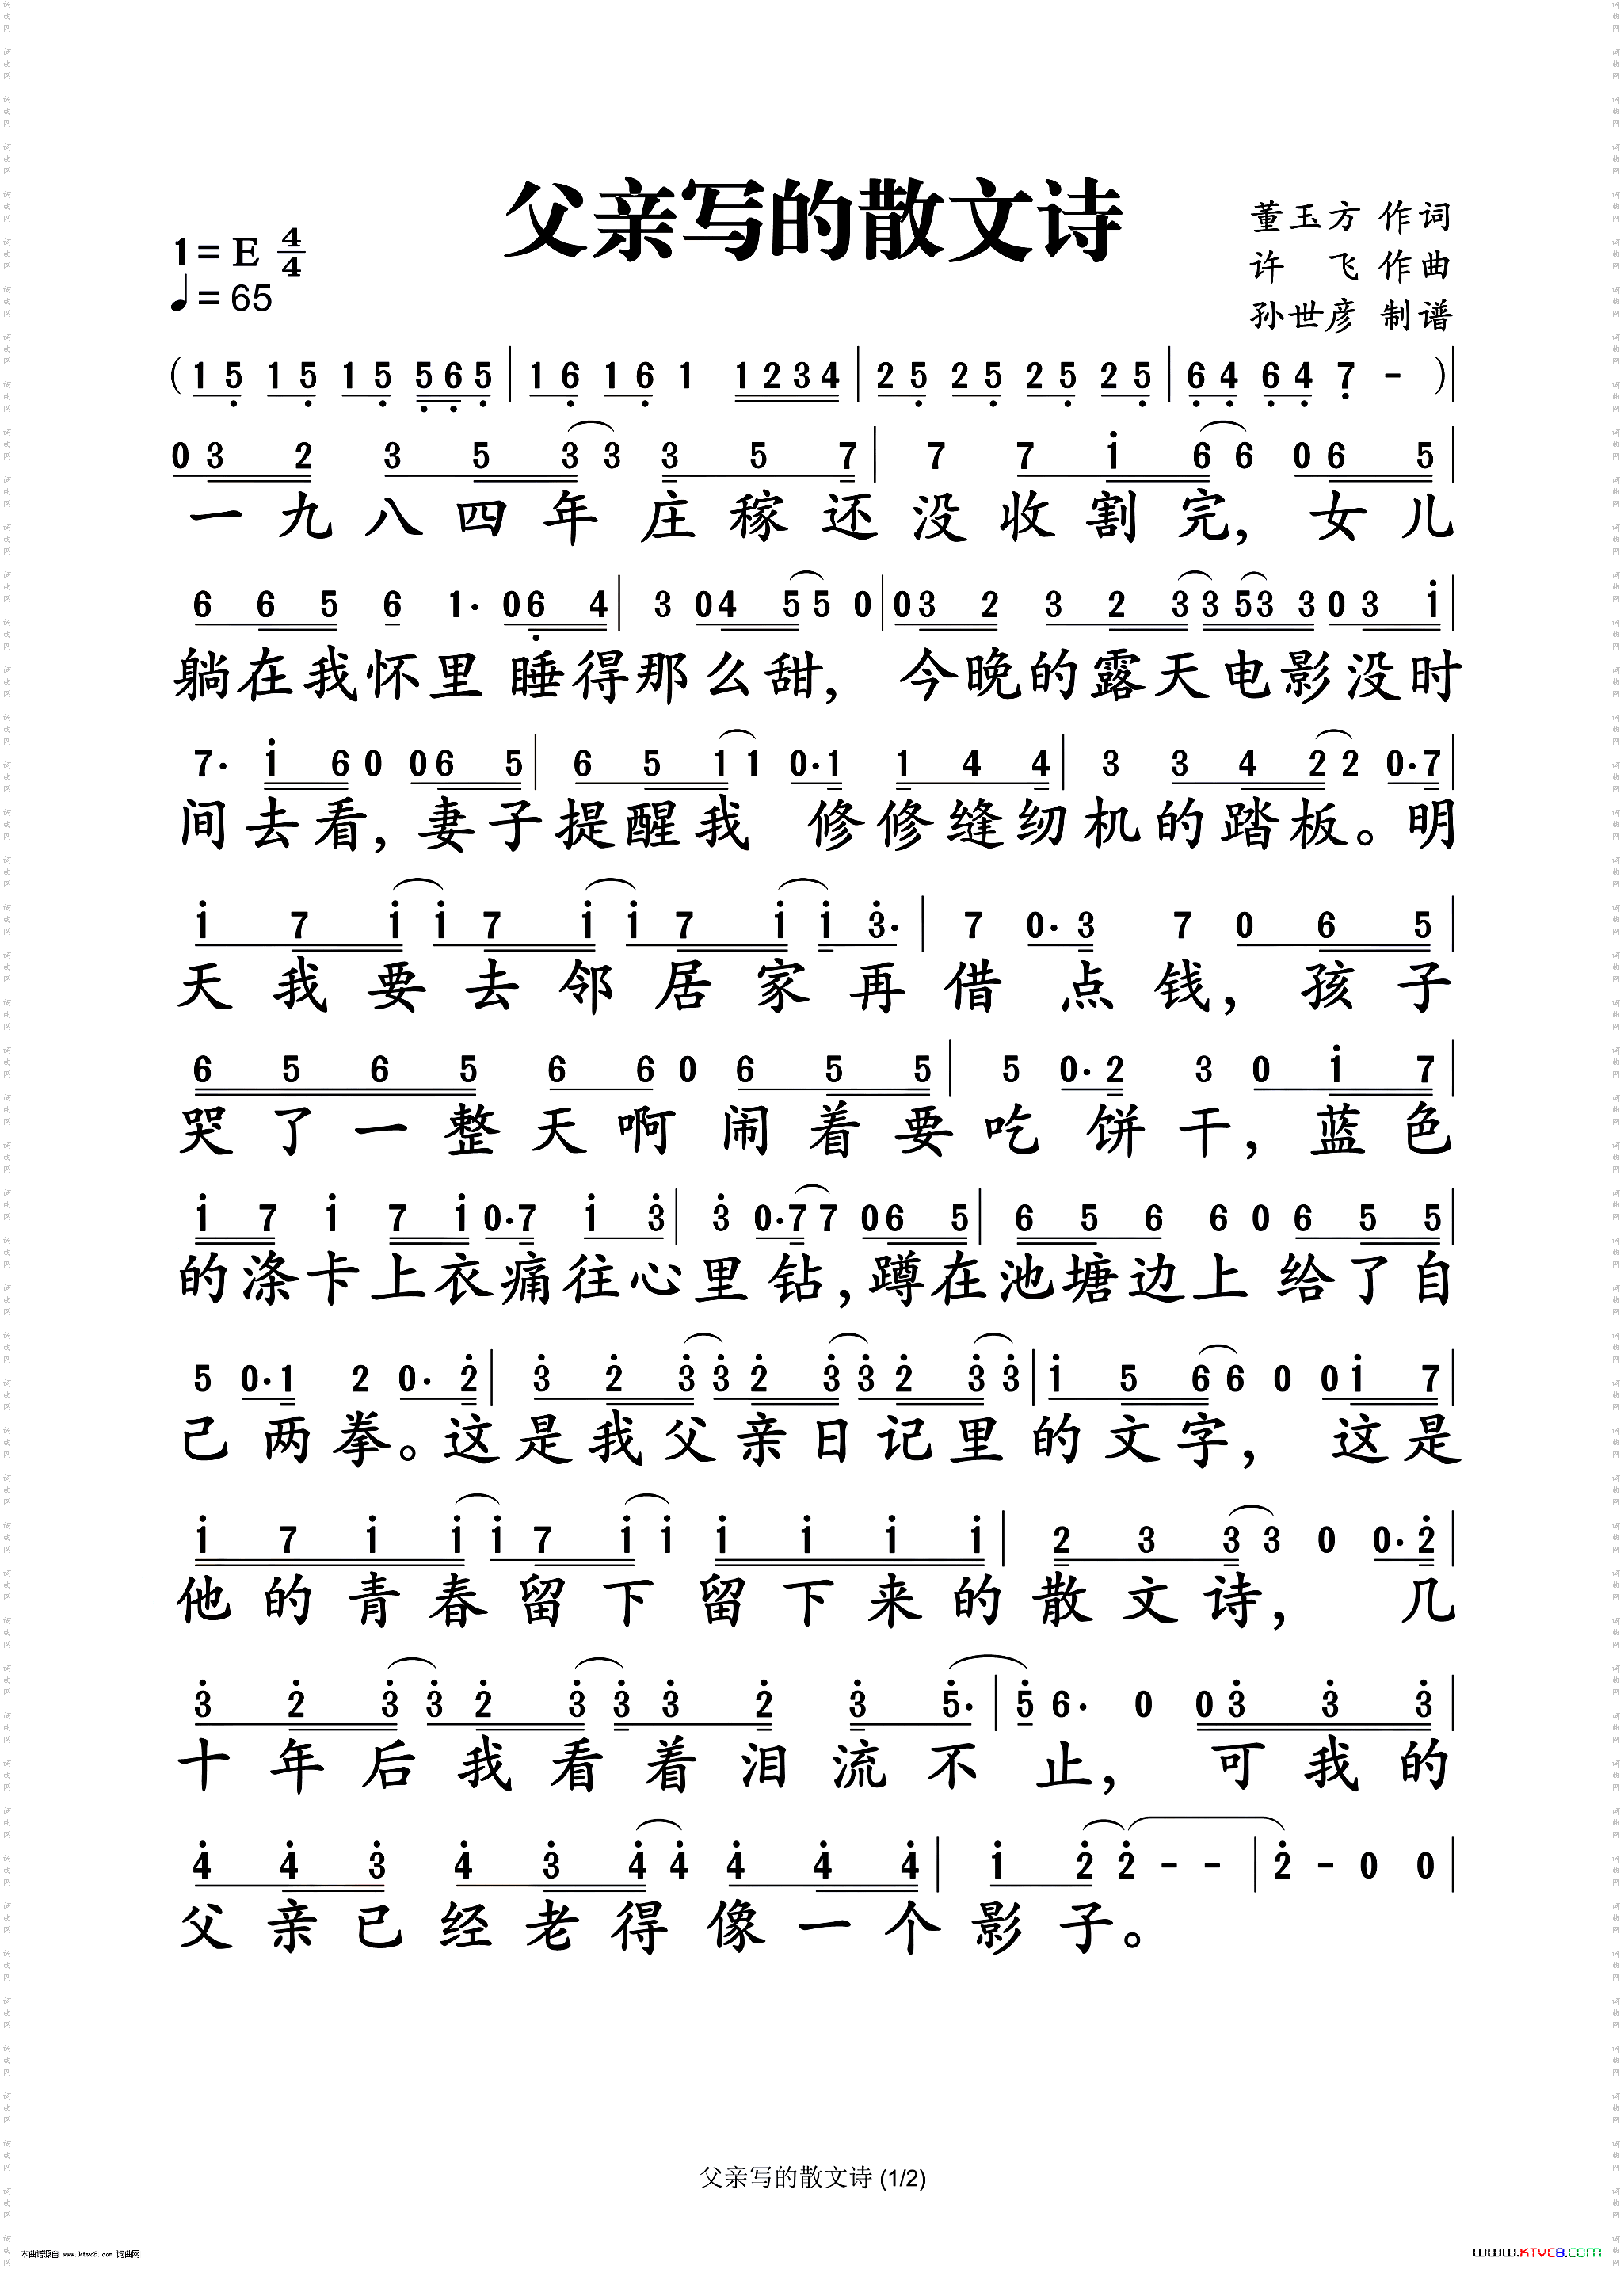 父亲写的散文诗
1=E 4/4
♩=65
董玉方 作词
许 飞 作曲
孙世彦 制谱
(1 5 1 5 1 5 5 6 5 | 1 6 1 6 1 1 2 3 4 | 2 5 2 5 2 5 2 5 | 6 4 6 4 7 - )|
0 3 2 3 5 3 3 3 5 7 | 7 7 1 6 6 0 6 5 |
一九八四年庄稼还没收割完,女儿
6 6 5 6 1· 0 6 4 | 3 0 4 5 5 0 | 0 3 2 3 2 3 3 5 3 3 0 3 1 |
躺在我怀里睡得那么甜,今晚的露天电影没时
7· 1 6 0 0 6 5 | 6 5 1 1 0·1 1 4 4 | 3 3 4 2 2 0·7 |
间去看,妻子提醒我 修修缝纫机的踏板。明
1 7 1 1 7 1 1 7 1 1 3· | 7 0·3 7 0 6 5 |
天我要去邻居家再借点钱,孩子
6 5 6 5 6 6 0 6 5 5 | 5 0·2 3 0 1 7 |
哭了一整天啊闹着要吃饼干,蓝色
1 7 1 7 1 0·7 1 3 | 3 0·7 7 0 6 5 | 6 5 6 6 0 6 5 5 |
的涤卡上衣痛往心里钻,蹲在池塘边上给了自
5 0·1 2 0·2 | 3 2 3 3 2 3 3 2 3 3 | 1 5 6 6 0 0 1 7 |
己两拳。这是我父亲日记里的文字,这是
1 7 1 1 1 7 1 1 1 1 1 1 | 2 3 3 3 0 0·2 |
他的青春留下留下来的散文诗,几
3 2 3 3 2 3 3 3 2 3 5· | 5 6· 0 0 3 3 3 |
十年后我看着泪流不止,可我的
4 4 3 4 3 4 4 4 4 4 | 1 2 2 - - | 2 - 0 0 |
父亲已经老得像一个影子。
父亲写的散文诗 (1/2)
本曲谱源自 www.ktvc8.com 词曲网
www.KTVC8.COM